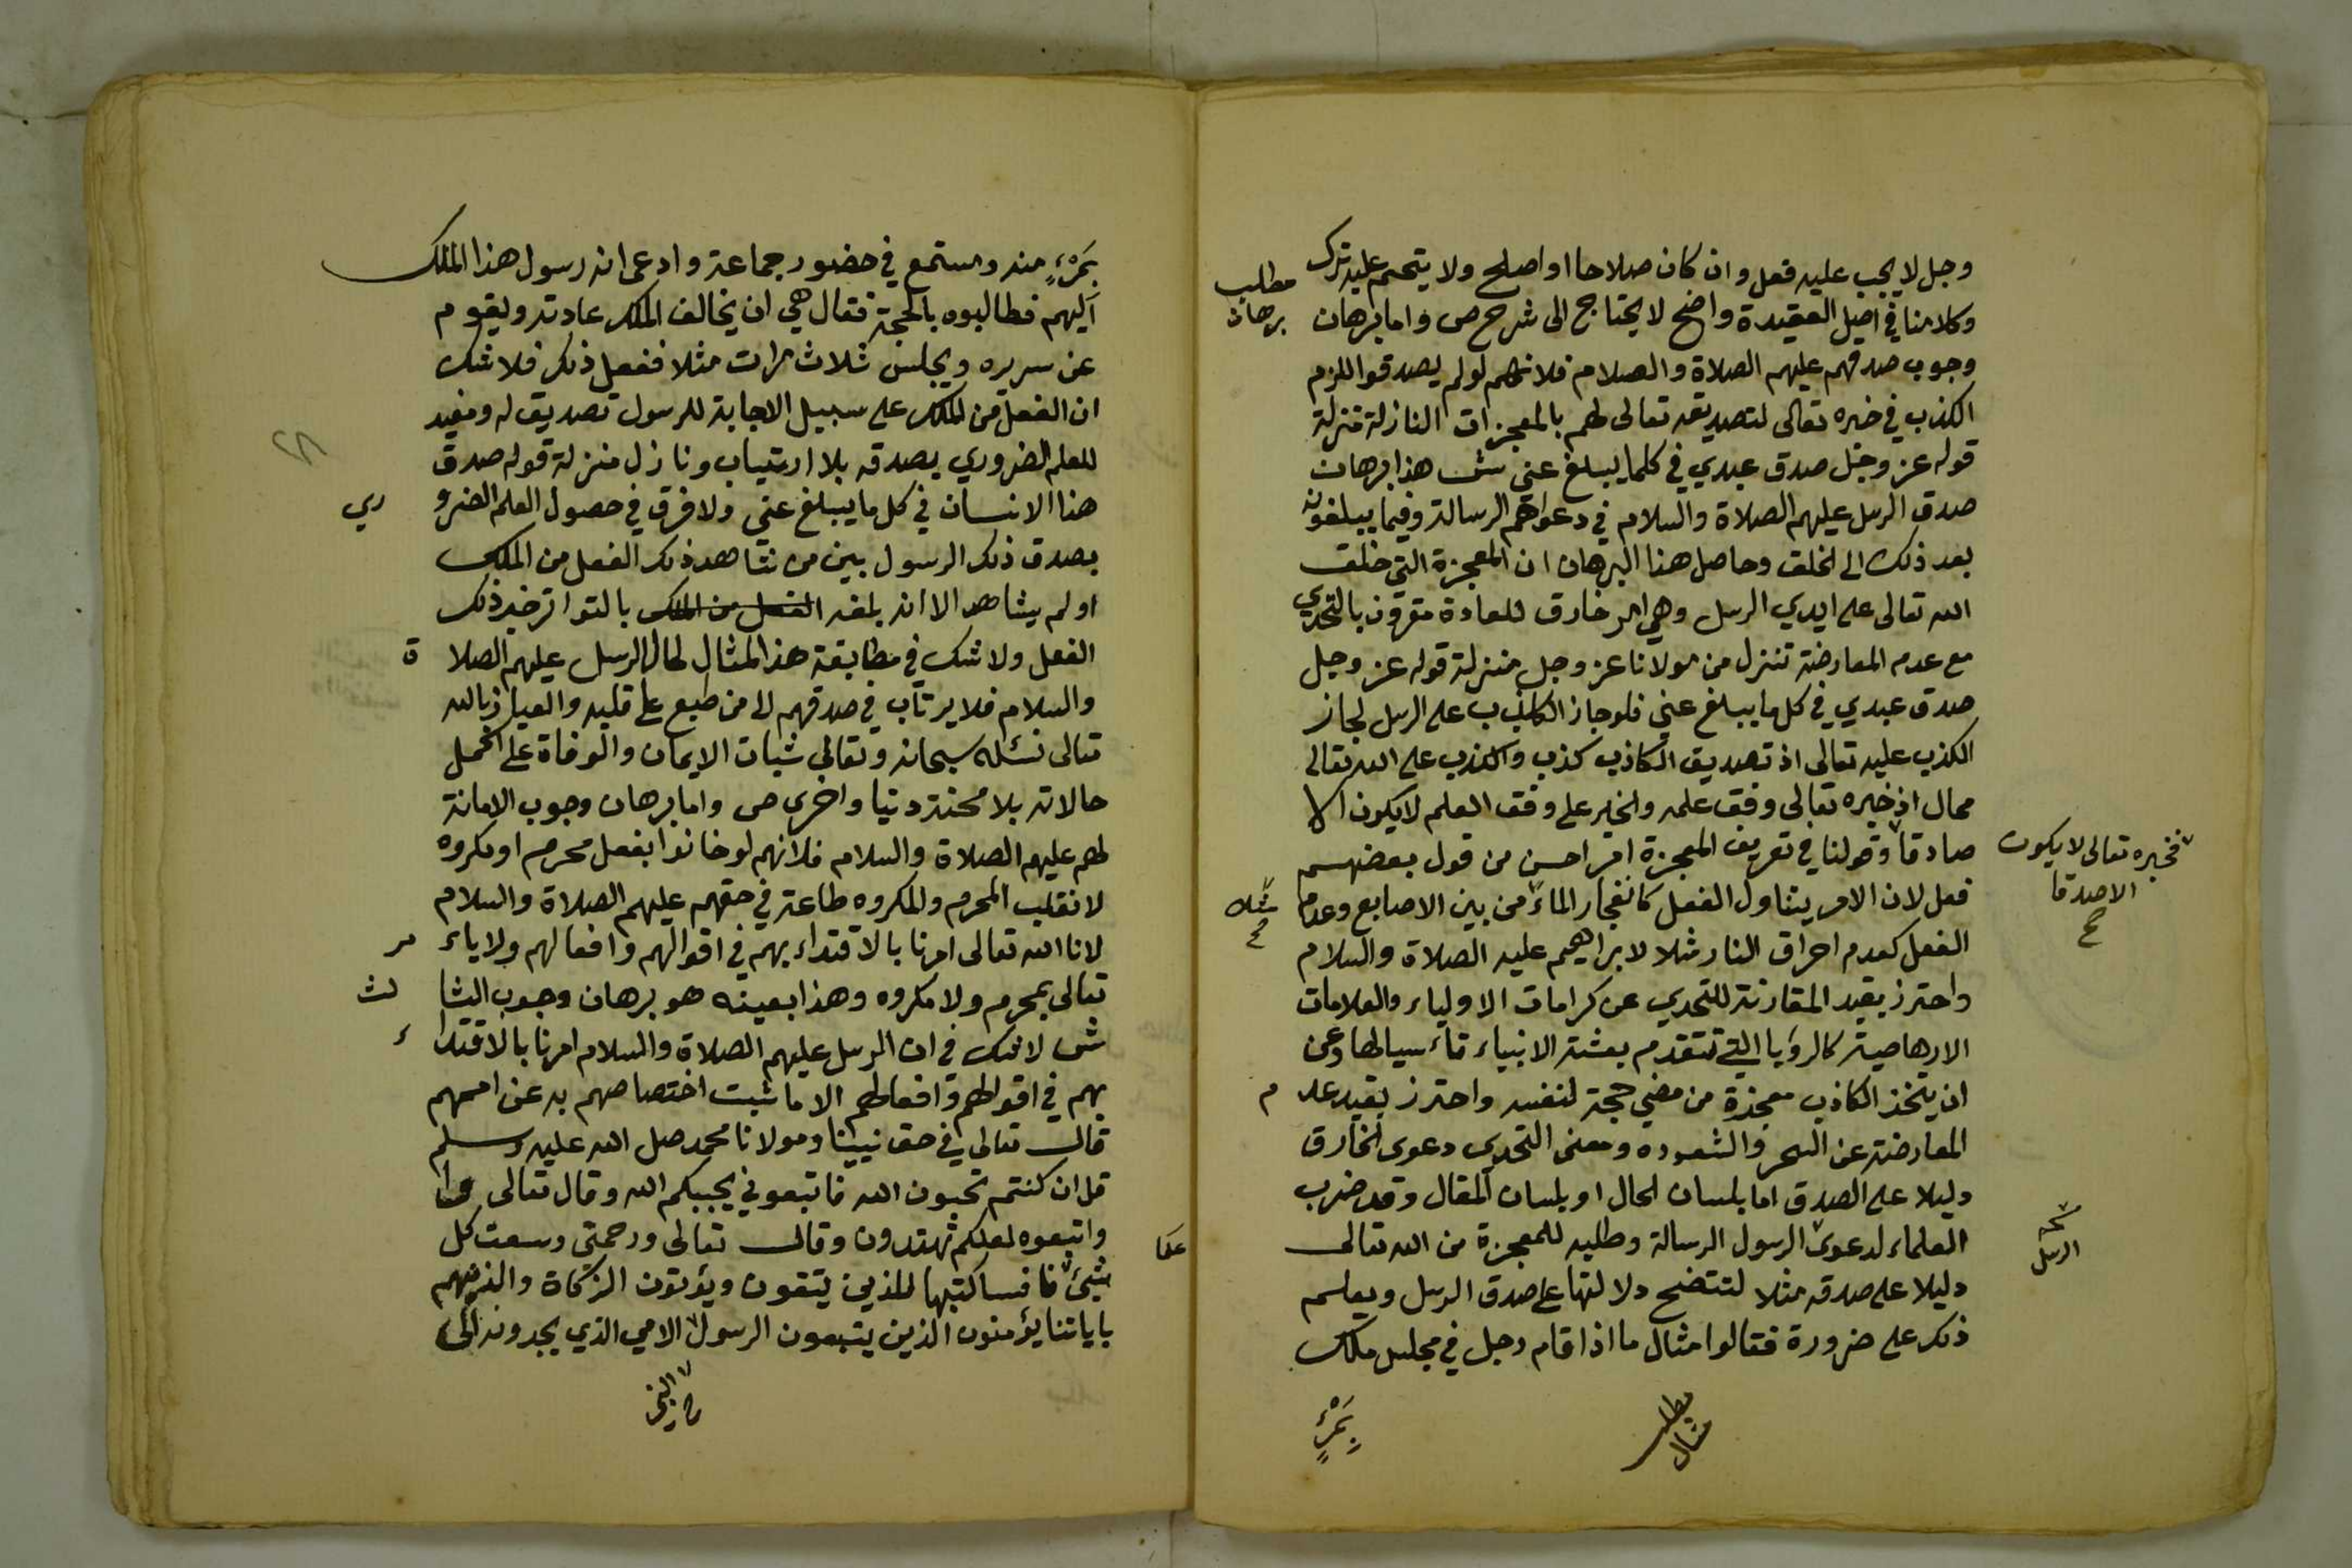 وجل لا يجب عليه فعل وان كان صلاحا او اصلح ولا يتحتم عليه ترك
مطلب
برهان
وكلامنا في اصل العقيدة واضح لا يحتاج الى شرح ص واما برهان
وجوب صدقهم عليهم الصلاة والسلام فلانهم لو لم يصدقوا للزم
الكذب في خبره تعالى لتصديقه تعالى لهم بالمعجزات النازلة منزلة
قوله عز وجل صدق عبدي في كلما يبلغ عني ش هذا برهان
صدق الرسل عليهم الصلاة والسلام في دعواهم الرسالة وفيما يبلغونه
بعد ذلك الى الخلق وحاصل هذا البرهان ان المعجزة التي خلق
الله تعالى على ايدي الرسل وهي امر خارق للعادة مقرون بالتحدي
مع عدم المعارضة تنزل من مولانا عز وجل منزلة قوله عز وجل
صدق عبدي في كل ما يبلغ عني فلو جاز الكذب على الرسل لجاز
الكذب عليه تعالى اذ تصديق الكاذب كذب والكذب على الله تعالى
محال اذ خبره تعالى وفق علمه والخبر على وفق العلم لا يكون الا
صادقا وقولنا في تعريف المعجزة امر احسن من قول بعضهم
فخبره تعالى لا يكون
الا صدقا
صح
فعل لان الامر يتناول الفعل كانفجار الماء من بين الاصابع وعدم
مثلا
صح
الفعل كعدم احراق النار مثلا لابراهيم عليه الصلاة والسلام
واحترز بقيد المقارنة للتحدي عن كرامات الاولياء والعلامات
الارهاصية كالرؤيا التي تتقدم بعثة الانبياء تاء سيا لها وعن
ان يتخذ الكاذب معجزة من مضي حجة لنفسه واحترز بقيد عد م
المعارضة عن السحر والشعوده ومعنى التحدي دعوى الخارق
دليلا على الصدق اما بلسان الحال او بلسان المقال وقد ضرب
العلماء لدعوى الرسول الرسالة وطلبه للمعجزة من الله تعالى
الرسل
دليلا على صدقه مثلا لتتضح دلالتها على صدق الرسل ويعلم
ذلك على ضرورة فقالوا مثال ما اذا قام رجل في مجلس ملك
مطلب
مثال
بمرءٍ
بمرءٍ منه ومستمع في حضور جماعة وادعى انه رسول هذا الملك
اليهم فطالبوه بالحجة فقال هي ان يخالف الملك عادته ويقوم
عن سريره ويجلس ثلاث مرات مثلا ففعل ذلك فلا شك
ان الفعل من الملك على سبيل الاجابة للرسول تصديق له ومفيد
للعلم الضروري بصدقه بلا ارتياب ونازل منزلة قوله صدق
هذا الانسان في كل ما يبلغ عني ولا فرق في حصول العلم الضرو ري
بصدق ذلك الرسول بين من شاهد ذلك الفعل من الملك
او لم يشاهد الا انه بلغه الفعل من الملك بالتواتر خبر ذلك
الفعل ولا شك في مطابقة هذا المثال لحال الرسل عليهم الصلا ة
والسلام فلا يرتاب في صدقهم الا من طبع على قلبه والعياذ بالله
تعالى نسئله سبحانه وتعالى ثبات الايمان والوفاة على اكمل
حالاته بلا محنة دنيا واخرى ص واما برهان وجوب الامانة
لهم عليهم الصلاة والسلام فلانهم لو خانوا بفعل محرم او مكروه
لانقلب المحرم والمكروه طاعة في حقهم عليهم الصلاة والسلام
لان الله تعالى امرنا بالاقتداء بهم في اقوالهم وافعالهم ولا ياء مر
تعالى بمحرم ولا مكروه وهذا بعينه هو برهان وجوب الثا لث
ش لا شك في ان الرسل عليهم الصلاة والسلام امرنا بالاقتدا ء
بهم في اقوالهم وافعالهم الا ما ثبت اختصاصهم به عن اممهم
قال تعالى في حق نبينا ومولانا محمد صلى الله عليه وسلم
قل ان كنتم تحبون الله فاتبعوني يحببكم الله وقال تعالى
واتبعوه لعلكم تهتدون وقال تعالى ورحمتي وسعت كل
شيئ فا فساكتبها للذين يتقون ويؤتون الزكاة والذين هم
باياتنا يؤمنون الذين يتبعون الرسول الامي الذي يجدونه
النبي
صح